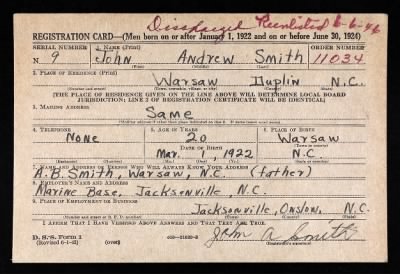 Discharged Reenlisted 6-6-46
REGISTRATION CARD—(Men born on or after January 1, 1922 and on or before June 30, 1924)
SERIAL NUMBER 1. NAME (Print) ORDER NUMBER
N 9 John Andrew Smith 11034
(First) (Middle) (Last)
2. PLACE OF RESIDENCE (Print)
Warsaw Duplin N.C.
(Number and street) (Town, township, village, or city) (County) (State)
[THE PLACE OF RESIDENCE GIVEN ON THE LINE ABOVE WILL DETERMINE LOCAL BOARD
JURISDICTION; LINE 2 OF REGISTRATION CERTIFICATE WILL BE IDENTICAL]
3. MAILING ADDRESS
Same
[Mailing address if other than place indicated on line 2. If same, insert word same]
4. TELEPHONE 5. AGE IN YEARS 6. PLACE OF BIRTH
None 20 Warsaw
DATE OF BIRTH
Mar. 1, 1922 N.C.
7. NAME AND ADDRESS OF PERSON WHO WILL ALWAYS KNOW YOUR ADDRESS
A.B. Smith, Warsaw, N.C. (father)
8. EMPLOYER'S NAME AND ADDRESS
Marine Base, Jacksonville, N.C.
9. PLACE OF EMPLOYMENT OR BUSINESS
Jacksonville, Onslow, N.C.
(Number and street or R. F. D. number) (Town) (County) (State)
I AFFIRM THAT I HAVE VERIFIED ABOVE ANSWERS AND THAT THEY ARE TRUE.
D. S. S. Form 1
(Revised 6-1-42) (over) John A Smith
(Registrant's signature)